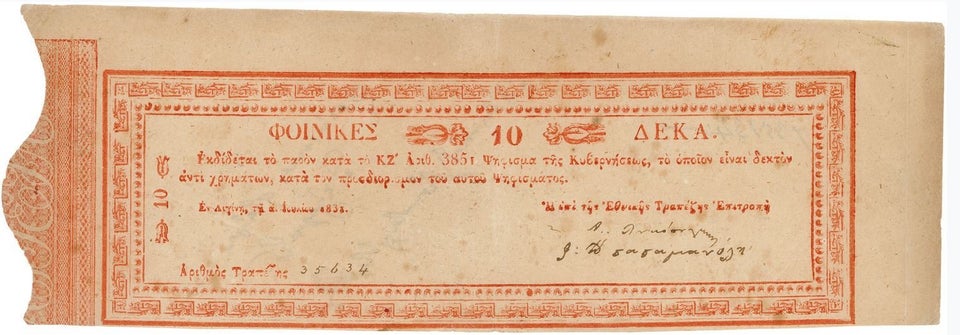 ΦΟΙΝΙΚΕΣ 10 ΔΕΚΑ.
Ἐκδίδεται τὸ παρὸν κατὰ τὸ ΚΖ' Ἀριθ. 3851 Ψήφισμα τῆς Κυβερνήσεως, τὸ ὁποῖον εἶναι δεκτὸν
ἀντὶ χρημάτων, κατὰ τὸν προσδιορισμὸν τοῦ αὐτοῦ Ψηφίσματος.
10
Ἐν Αἰγίνῃ, τῇ Ἰουλίου 1831.
Ἡ ἐπὶ τῆς Ἐθνικῆς Τραπέζης Ἐπιτροπὴ
Ἀριθμὸς Τραπέζης 35634